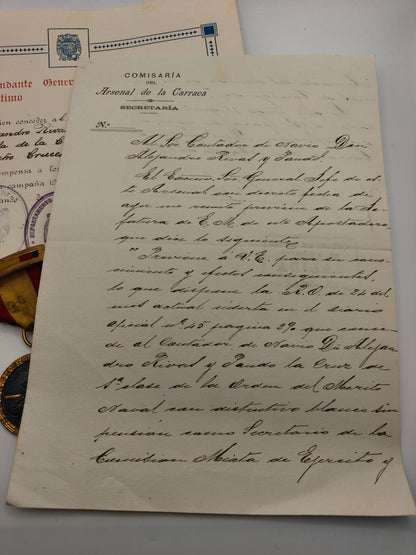 ndante Gener
timo
ien conceder al
andro Rivas
la de la C
Cruces
mpensa a los
campaña 19
DEPARTAMENTO
COMISARÍA
DEL
Arsenal de la Carraca
SECRETARÍA
N.º
Al Sor Contador de Navío Don
Alejandro Rivas y Pando.
El Excmo Sor General Jefe de es-
te Arsenal con decreto fecha de
ayer me remite previnien de la Je-
fatura de E. M. de este Apostadero
que dice lo siguiente
"Previene á V. E. para su cono-
cimiento y efectos consiguientes,
lo que dispone la R. O. de 24 del
mes actual inserta en el diario
oficial nº 45 pagina 29 que conce-
de al Contador de Navío Dn Alejan-
dro Rivas y Pando la Cruz de
1ª clase de la Orden del Merito
Naval con distintivo blanco sin
pension como Secretario de la
Comision Mixta de Ejercito y